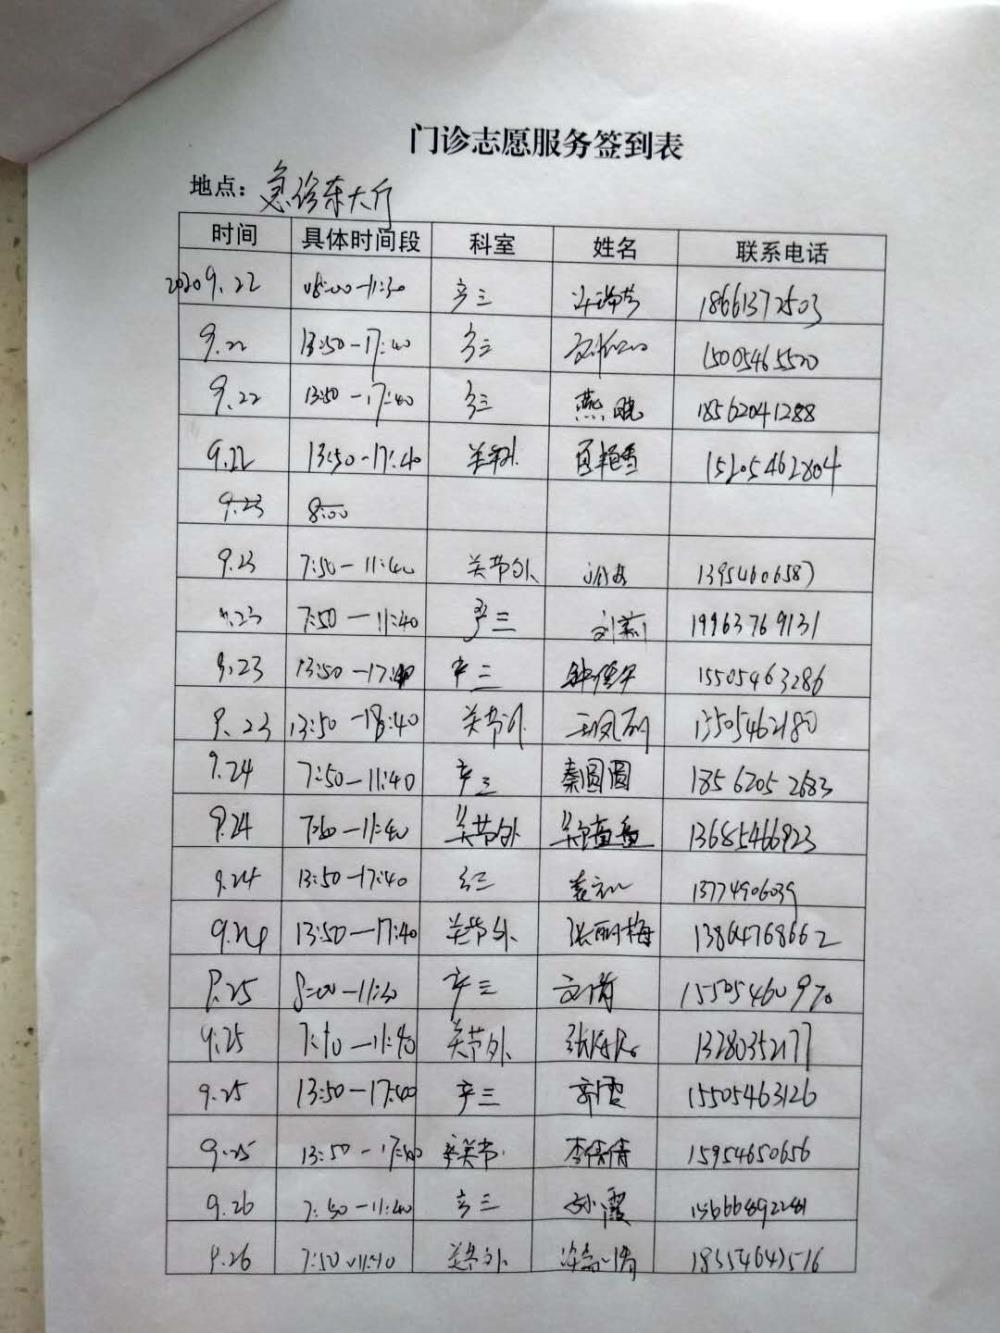 门诊志愿服务签到表
地点：急诊东大厅
时间 具体时间段 科室 姓名 联系电话
2020 9.22 08:00-11:30 产三 18661372503
9.22 13:50-17:40 产三 15005465520
9.22 13:50-17:40 产三 燕晓 18562041288
9.22 13:50-17:40 15205462804
9.23 8:00
9.23 7:50-11:40 关节外 13954606587
9.23 7:50-11:40 产三 19963769131
9.23 13:50-17:40 产三 15505463286
9.23 13:50-18:40 关节外 13505462180
9.24 7:50-11:40 产三 秦圆圆 18562052683
9.24 11:40 关节外 13685466923
9.24 13:50-17:40 产三 13774906039
9.24 13:50-17:40 关节外 张丽梅 13864768662
9.25 8:00-11:30 产三 15505460970
9.25 7:50-11:40 关节外 13280352177
9.25 13:50-17:40 产三 15505463126
9.25 13:50-17:40 关节 李倩倩 15954650656
9.26 7:50-11:40 产三 孙霞
9.26 7:50-11:40 关节外 18554643516